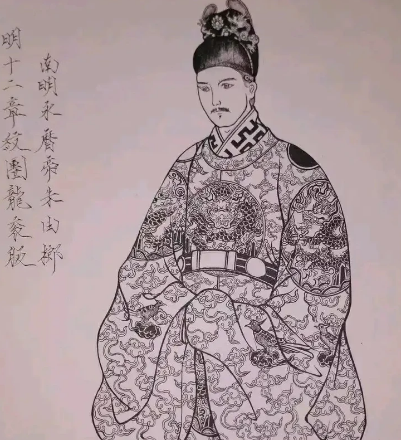 南明永曆帝朱由榔
明十二章紋團龍袞服